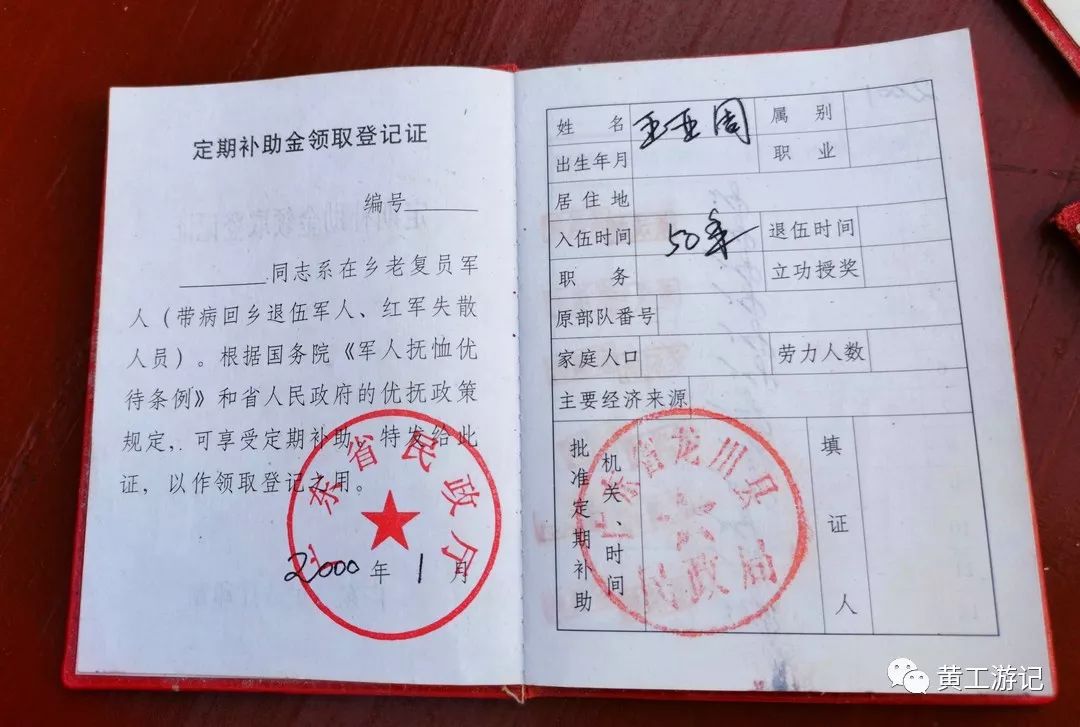 定期补助金领取登记证
编号
同志系在乡老复员军
人（带病回乡退伍军人、红军失散
人员）。根据国务院《军人抚恤优
待条例》和省人民政府的优抚政策
规定，可享受定期补助。特发给此
证，以作领取登记之用。
广东省民政厅
2000年1月
姓名 王亚周 属别
出生年月 职业
居住地
入伍时间 50年 退伍时间
职务 立功授奖
原部队番号
家庭人口 劳力人数
主要经济来源
批准定期补助
机关、时间
广东省龙川县
民政局
填证人
黄工游记